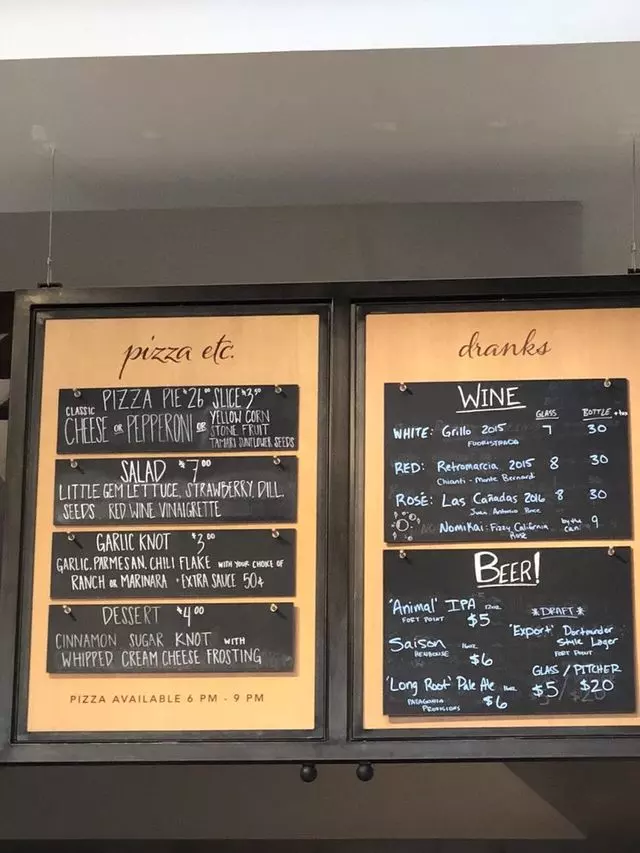 pizza etc.
PIZZA PIE $26⁰⁰ SLICE $3⁵⁰
CLASSIC
CHEESE OR PEPPERONI OR
YELLOW CORN
STONE FRUIT
TAMARI SUNFLOWER SEEDS
SALAD $7⁰⁰
LITTLE GEM LETTUCE, STRAWBERRY, DILL,
SEEDS, RED WINE VINAIGRETTE
GARLIC KNOT $3⁰⁰
GARLIC, PARMESAN, CHILI FLAKE WITH YOUR CHOICE OF
RANCH OR MARINARA • EXTRA SAUCE 50¢
DESSERT $4⁰⁰
CINNAMON SUGAR KNOT WITH
WHIPPED CREAM CHEESE FROSTING
PIZZA AVAILABLE 6 PM - 9 PM
dranks
WINE
GLASS BOTTLE
WHITE: Grillo 2015 7 30
RED: Retromarcia 2015 8 30
Chianti - Monte Bernardi
ROSÉ: Las Cañadas 2016 8 30
Juan Antonio
Nomikai: Fizzy California by the can 9
Rosé
BEER!
'Animal' IPA 12oz
FORT POINT $5
Saison 16oz
HENHOUSE $6
'Long Root' Pale Ale 16oz
PATAGONIA PROVISIONS $6
*DRAFT*
'Export' Dortmunder
Style Lager
FORT POINT
GLASS / PITCHER
$5 / $20